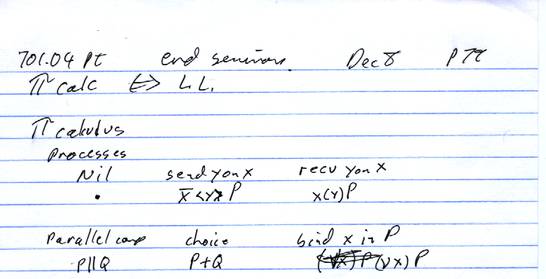 701.04 PT end seminars. Dec 8 P TT
π calc <=> L L.
π calculus
Processes
Nil send y on x recv y on x
• x̄<y>P x(y)P
Parallel comp choice bind x in P
P||Q P+Q (νx)P